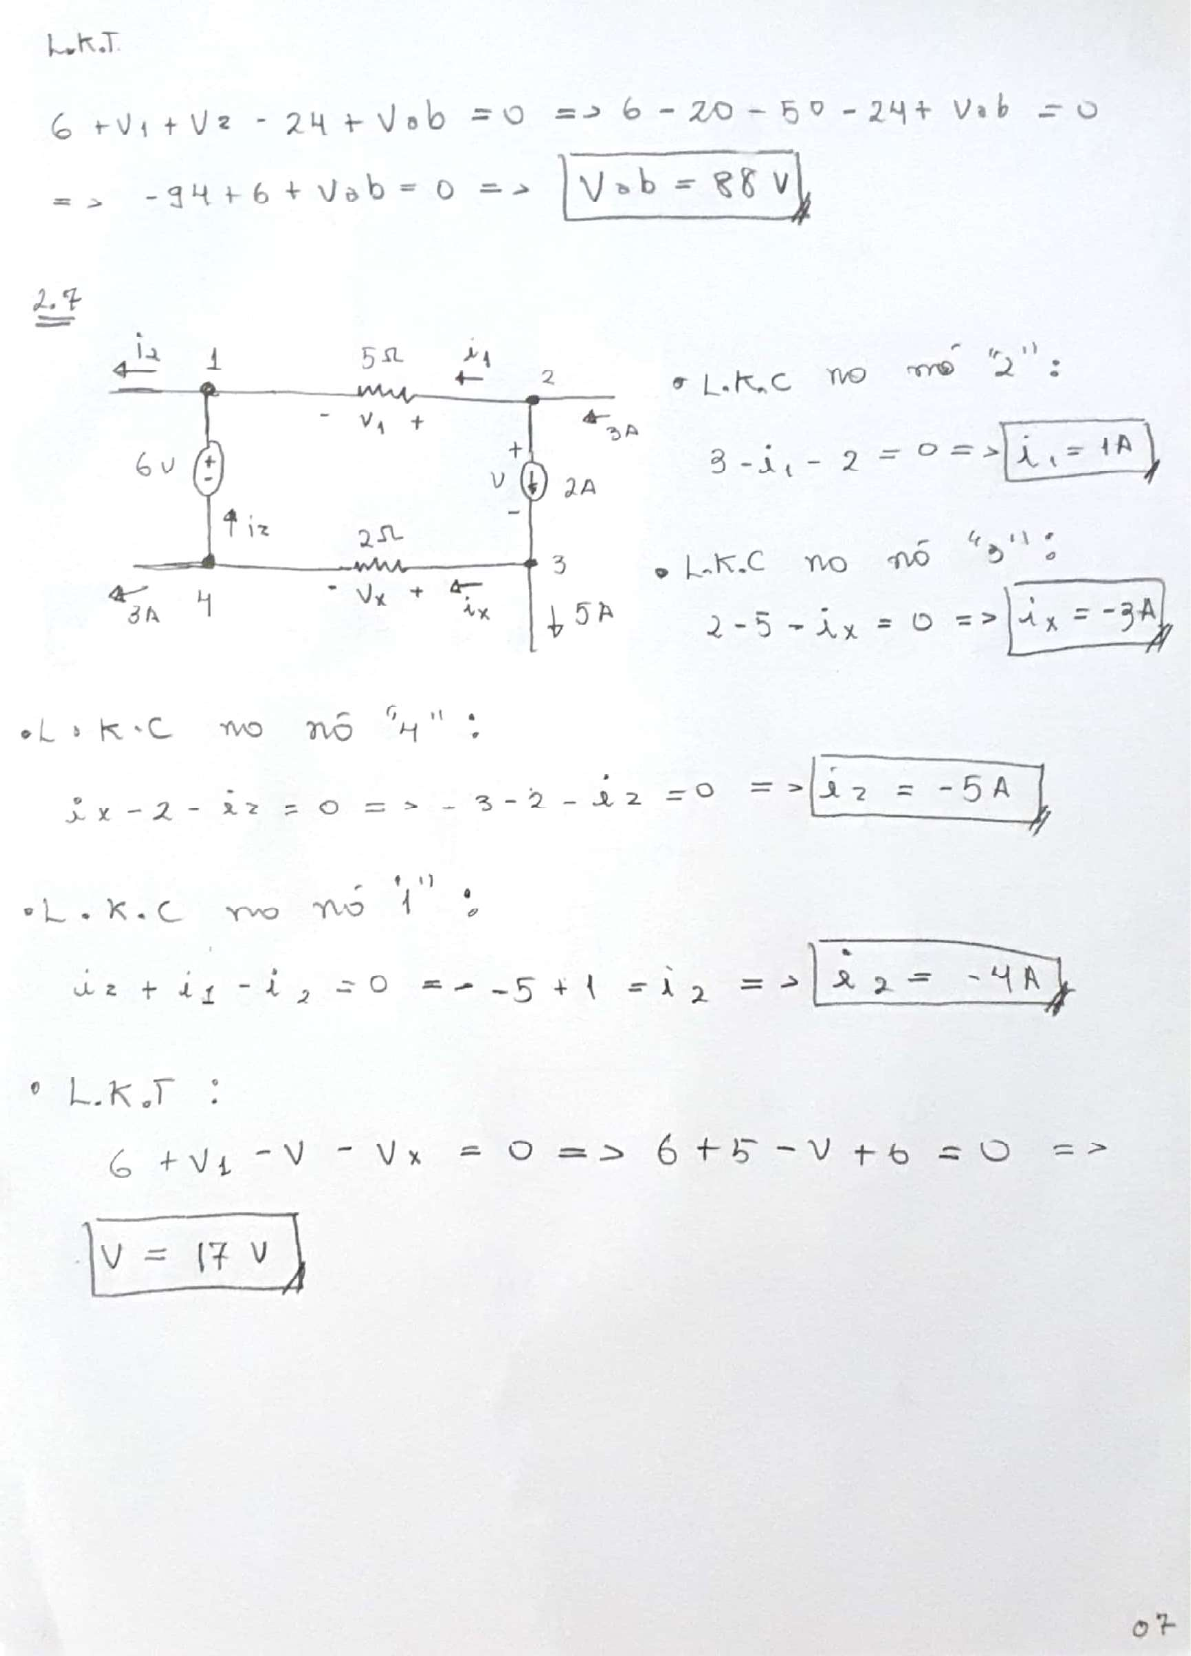 L.K.T.
6 + V1 + V2 - 24 + Vab = 0 => 6 - 20 - 50 - 24 + Vab = 0
=> -94 + 6 + Vab = 0 => Vab = 88 V
2.7
i2 1 5Ω i1 2
- V1 + 3A
6V + - + V - 2A
iz 2Ω 3
3A 4 - Vx + ix 5A
• L.K.C no nó "2":
3 - i1 - 2 = 0 => i1 = 1A
• L.K.C no nó "3":
2 - 5 - ix = 0 => ix = -3A
• L.K.C no nó "4":
ix - 2 - iz = 0 => -3 - 2 - iz = 0 => iz = -5A
• L.K.C no nó "1":
iz + i1 - i2 = 0 => -5 + 1 = i2 => i2 = -4A
• L.K.T:
6 + V1 - V - Vx = 0 => 6 + 5 - V + 6 = 0 =>
V = 17 V
07